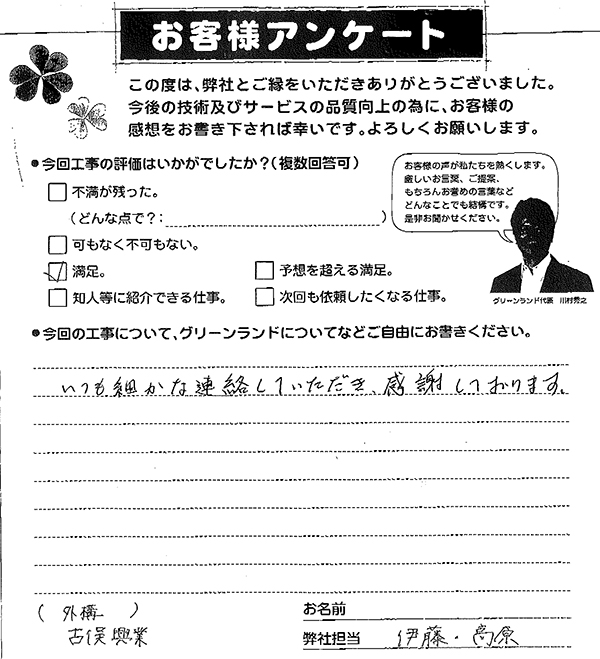 お客様アンケート
この度は、弊社とご縁をいただきありがとうございました。
今後の技術及びサービスの品質向上の為に、お客様の
感想をお書き下されば幸いです。よろしくお願いします。
●今回工事の評価はいかがでしたか？(複数回答可)
不満が残った。
(どんな点で？: )
可もなく不可もない。
満足。
予想を超える満足。
知人等に紹介できる仕事。
次回も依頼したくなる仕事。
お客様の声が私たちを熱くします。
厳しいお言葉、ご提案、
もちろんお誉めの言葉など
どんなことでも結構です。
是非お聞かせください。
グリーンランド代表 川村秀之
●今回の工事について、グリーンランドについてなどご自由にお書きください。
いつも細かな連絡していただき、感謝しております。
( 外構 )
古俣興業
お名前
弊社担当 伊藤・高原